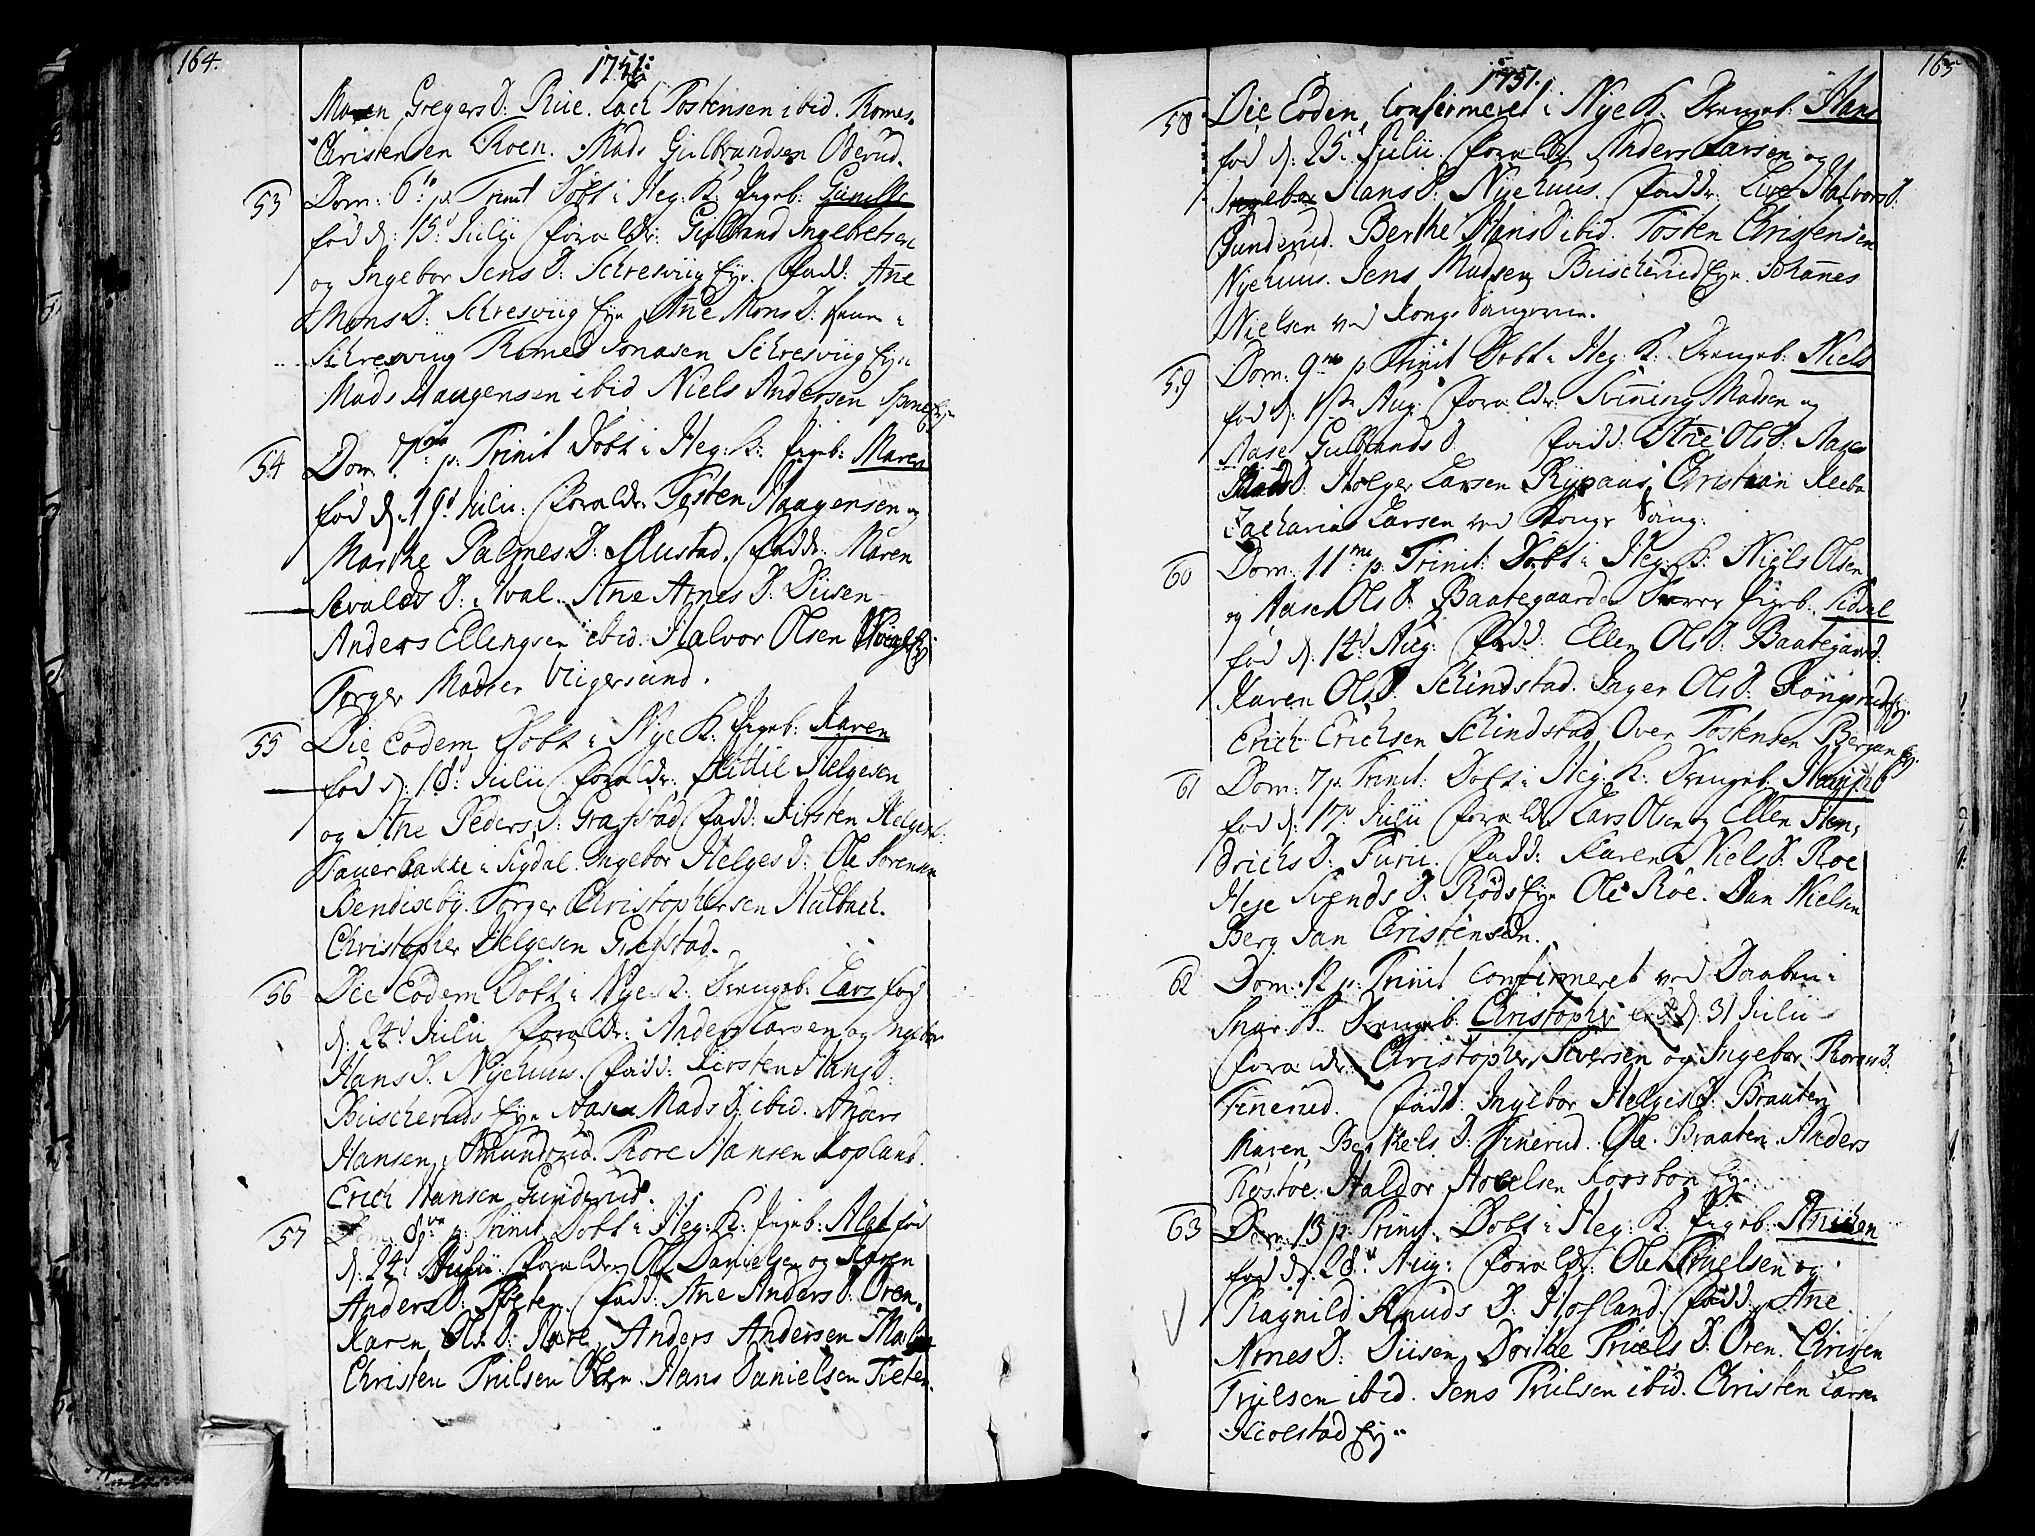 164.
1751.
Maren Gregers D: Rue. Lach Tostensen ibid. Tomes
Christensen Roen. Mads Gulbrandsen Oderud.
53 Dom: 6ta p. Trinit Döbt i Heg: K: Pigeb: Gunilde
fød d. 15d Julii Forældr: Gulbrand Ingebretsen
og Ingebor Jens D: Schresviig Eye. Fadd: Ane
Mons D: Schresviig Eye Ane Mons D:
Schresviig Tomes Jonasen Schresviig Eye
Mads Haagensen ibid Niels Andersen
54 Dom: 7ma p: Trinit Döbt i Heg: K: Pigeb: Maren
fød d. 19d Julii. Foræld: Tosten Haagensen og
Marthe Palmes D: Rustad. Fadd: Maren
Sevalds D: Aval. Ane Arnes D: Diisen
Anders Ellengsen ibid. Halvor Olsen
Torger Madsen Vigersund.
55 Die Eodem Döbt i Nye K: Pigeb: Karen
fød d. 18d Julii Foræld: Kittil Helgesen
og Ane Peders D: Grafstad Fadd: Kirsten Helges D.
i Sigdal. Ingebor Helges D: Ole Sørensen
Bendiseby. Torger Christophersen Hulbach.
Christopher Helgesen Gregstad.
56 Die Eodem Döbt i Nye K: Drengeb: Lars fød
d. 24d Julii Foræld: Anders Larsen og Ingebor
Hans D. Nyehuus. Fadd: Kirsten Hans D.
Buscheruds Eye Aase Mads D: ibid. Anders
Hansen Amundrud. Tore Hansen Kopland.
Erich Hansen Gunderud.
57 Dom: 8va p. Trinit Döbt i Heg: K: Pigeb: Alet fød
d. 24d Julii Foræld: Ole Danielsen og Karen
Anders D: Tveten Fadd: Ane Anders D: Oren.
Karen Ols D: Anders Andersen
Christen Trulsen Oren. Hans Danielsen Tveten.
165
1751.
58 Die Eodem Confirmeret i Nye K: Drengeb: Hans
fød d. 25d Julii Foræld: Anders Larsen og
Ingebor Hans D. Nyehuus. Faddr: Live Halvors D.
Gunderud. Berthe Hans D ibid. Tosten Christensen
Nyehuus. Jens Madsen Buscherud Eye Johannes
Nielsen ved Kongs
59 Dom: 9na p Trinit Döbt i Heg: K: Drengeb: Niels
fød d. 1ste Aug: Foræld: Svening Madsen og
Aase Gulbrands D Fadd: Ane Ols D: Aase
Mads D. Holger Larsen Rypaas. Christian
Zacharias Larsen ved Kongs
60 Dom: 11me p: Trinit: Döbt i Heg: K: Niels Olsen
og Aase Ols D. Baategaarden Pigeb: Sidsel
fød d. 14d Aug: Fadd: Ellen Ols D. Baategaard.
Karen Ols D. Schindstad. Inger Ols D.
Erich Erichsen Schindstad Over Tostensen Bergan Ey.
61 Dom: 7 p. Trinit: Döbt i Heg: K: Drengeb:
fød d: 17d Julii Foræld: Lars Olsen og Ellen Hen-
drichs D. Furu. Fadd: Karen Niels D. Roe
Hege Svends D. Røds Eye Ole Roe. Dan Nielsen
Berg Jan Christensen.
62 Dom: 12 p: Trinit confirmeret ved Daaben i
Snar K. Drengeb: Christopher fød d. 31 Julii
Foræld: Christopher Siversen og Ingebor Thores D.
Finerud. Fadd: Ingebor Helges D. Braaten
Maren Berthels D. Finerud. Ole Braaten. Anders
Haldor Hovelsen Eye.
63 Dom: 13 p: Trinit. Döbt i Heg: K: Pigeb: Anichen
fød d. 28d Aug: Foræld: Ole Truelsen og
Ragnild Knuds D. Hofland. Fadd: Ane
Arnes D: Diisen Dorthe Truels D: Oren. Christen
Trulsen ibid. Jens Trulsen ibid. Christen Larsen
Skiolstad Ey.